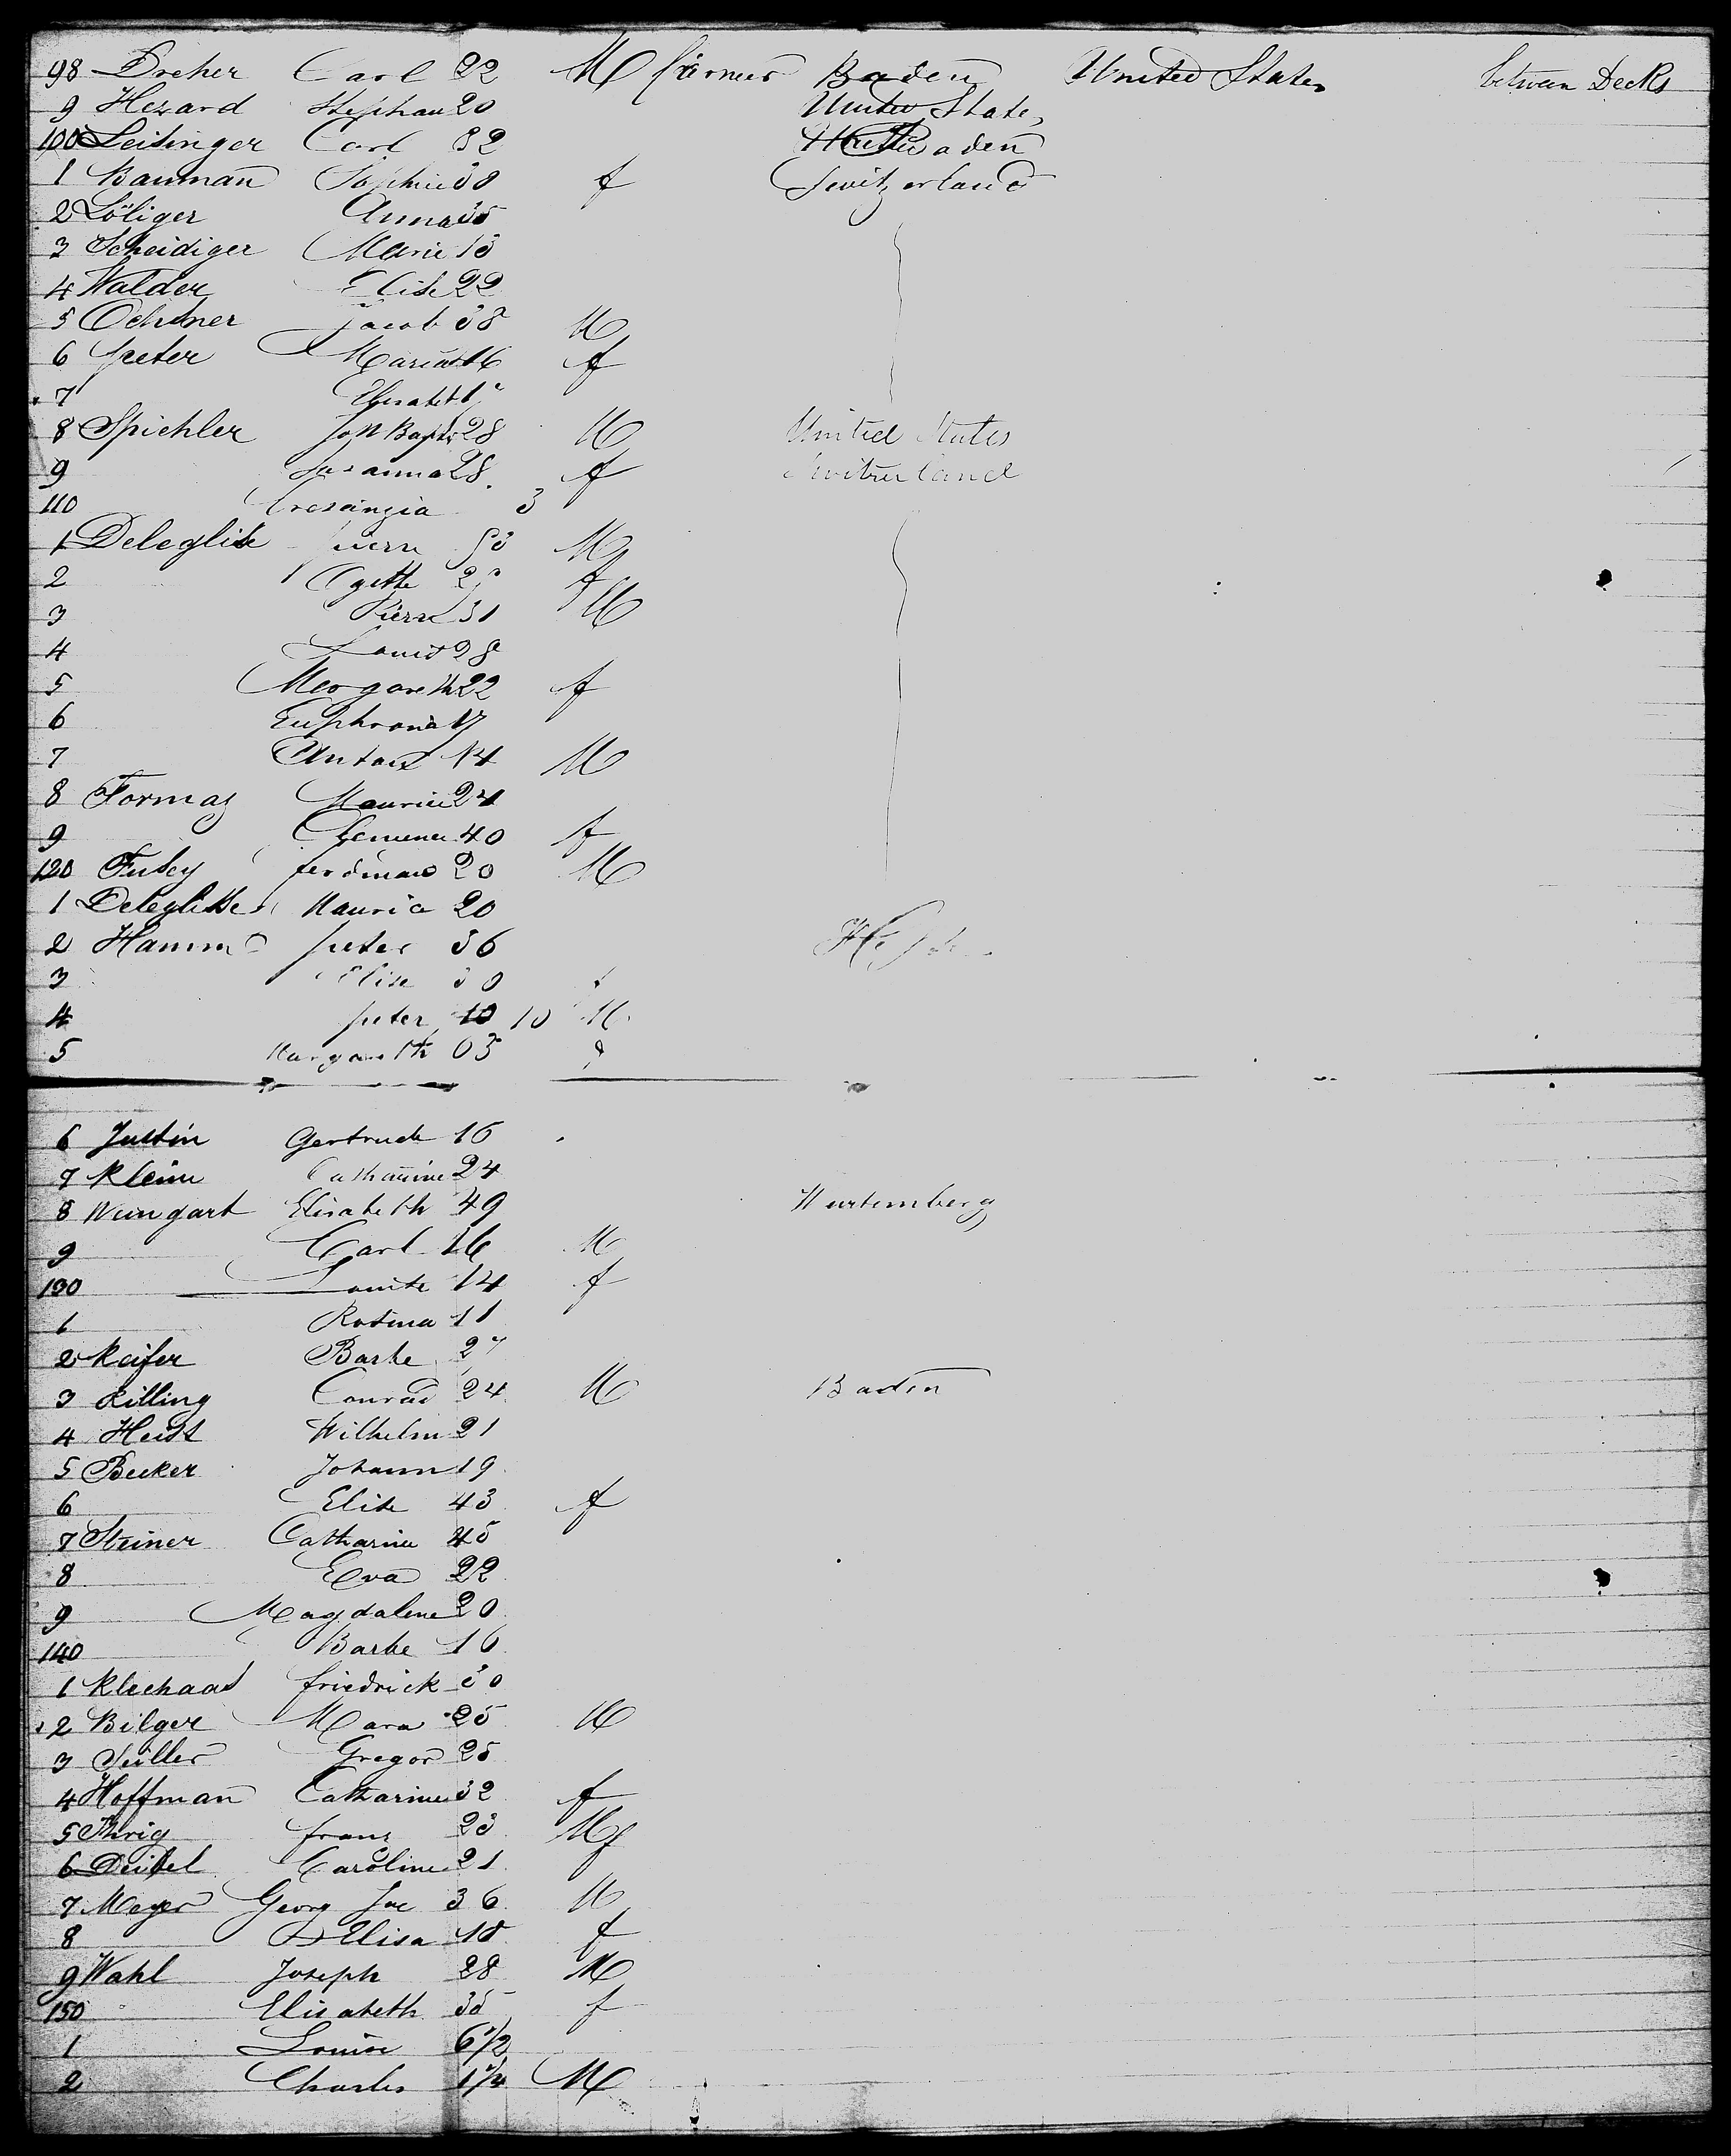 98 Dreher Carl 22 M farmer Baden United States between Decks
9 Hezard Stephan 20 United State,
100 Leisinger Carl 32 Baden
1 Bauman Sophie 38 f Switzerland
2 Löliger Anna 35
3 Scheidiger Marie 18
4 Walder Elise 22
5 Ochsner Jacob 38 M
6 peter Maria 16 f
7 Elisabeth
8 Spichler Joh Bapt 28 M United States
9 Susanna 28 f Switzerland
110 Cresanzia 3
1 Deleglise Pierre M
2 f
3 Pierre 31 M
4 Louis 28
5 Margareth 22 f
6 Euphrosia 17
7 Antoin 14 M
8 Formaz Maurice 24
9 40 f
120 Fusey ferdinand 20 M
1 Deleglise Maurice 20
2 Hamm peter 36
3 Elise 30 f
4 peter 10 10 M
5 Margareth 03 f
6 Justin Gertrude 16
7 Kleim Catharine 24
8 Weingart Elisabeth 49 Wurtemberg
9 Carl 16 M
130 Louise 14 f
1 Rosina 11
2 Keifer Barbe 27
3 Killing Conrad 24 M Baden
4 Heist Wilhelm 21
5 Becker Johann 19
6 Elise 43 f
7 Steiner Catharine 45
8 Eva 22
9 Magdalene 20
140 Barbe 16
1 Kleehaas friedrick 30
2 Bilger Mara 25 M
3 Seiller Gregor 25
4 Hoffman Catharine 32 f
5 Ihrig franz 23 M f
6 Deisel Caroline 21
7 Meyer Georg Jac 36 M
8 Elisa 18 f
9 Wahl Joseph 28 M
150 Elisabeth 35 f
1 Louise 6 1/2
2 Charles 1 1/4 M